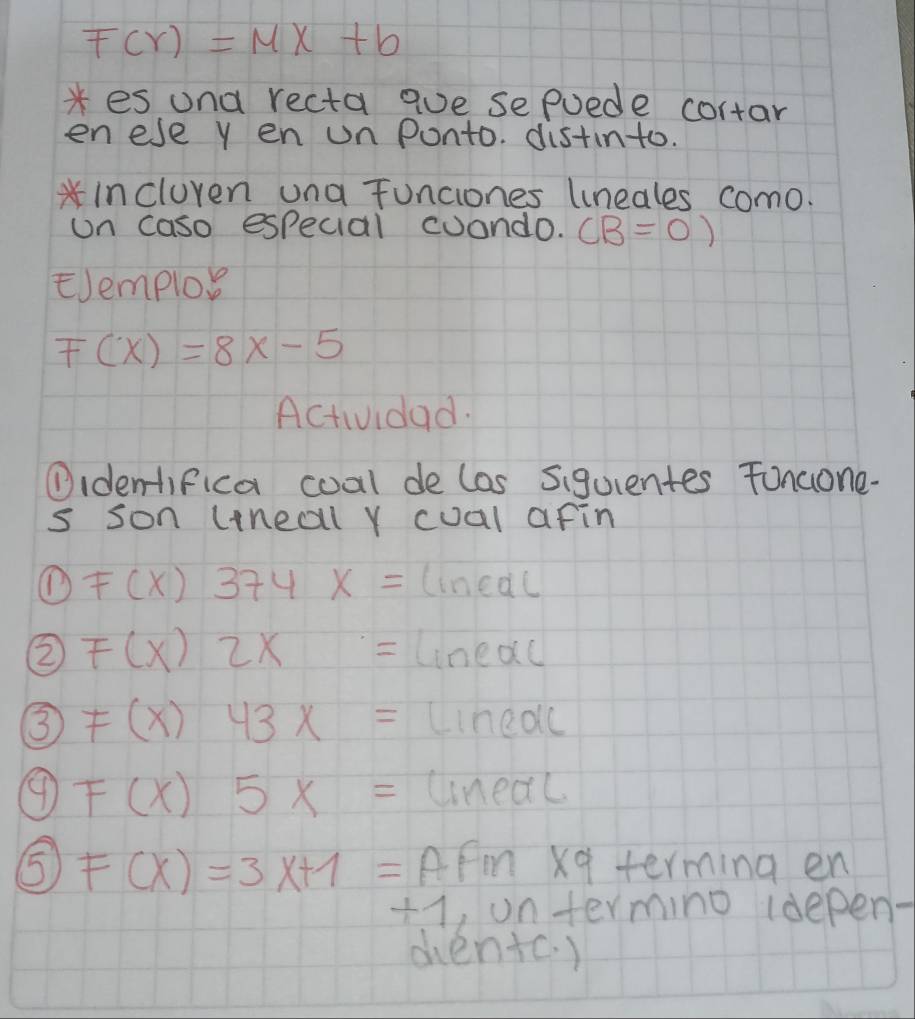 F(Y) = MX + b
* es una recta que se puede cortar
en eJe y en un Punto. distinto.
* incluyen una Funciones lineales como.
un caso especial cuando. (B=0)
EJemplo:
F(X) = 8X - 5
Actividad.
① identifica cual de las siguientes Funcione-
s son lineall y cual afin
① F(X) 374 X = lineal
② F(X) 2X = lineal
③ F(X) 43X = Lineal
④ F(X) 5X = lineal
⑤ F(X) = 3X+1 = AFin xq termina en
+1, un termino (depen-
diente.)